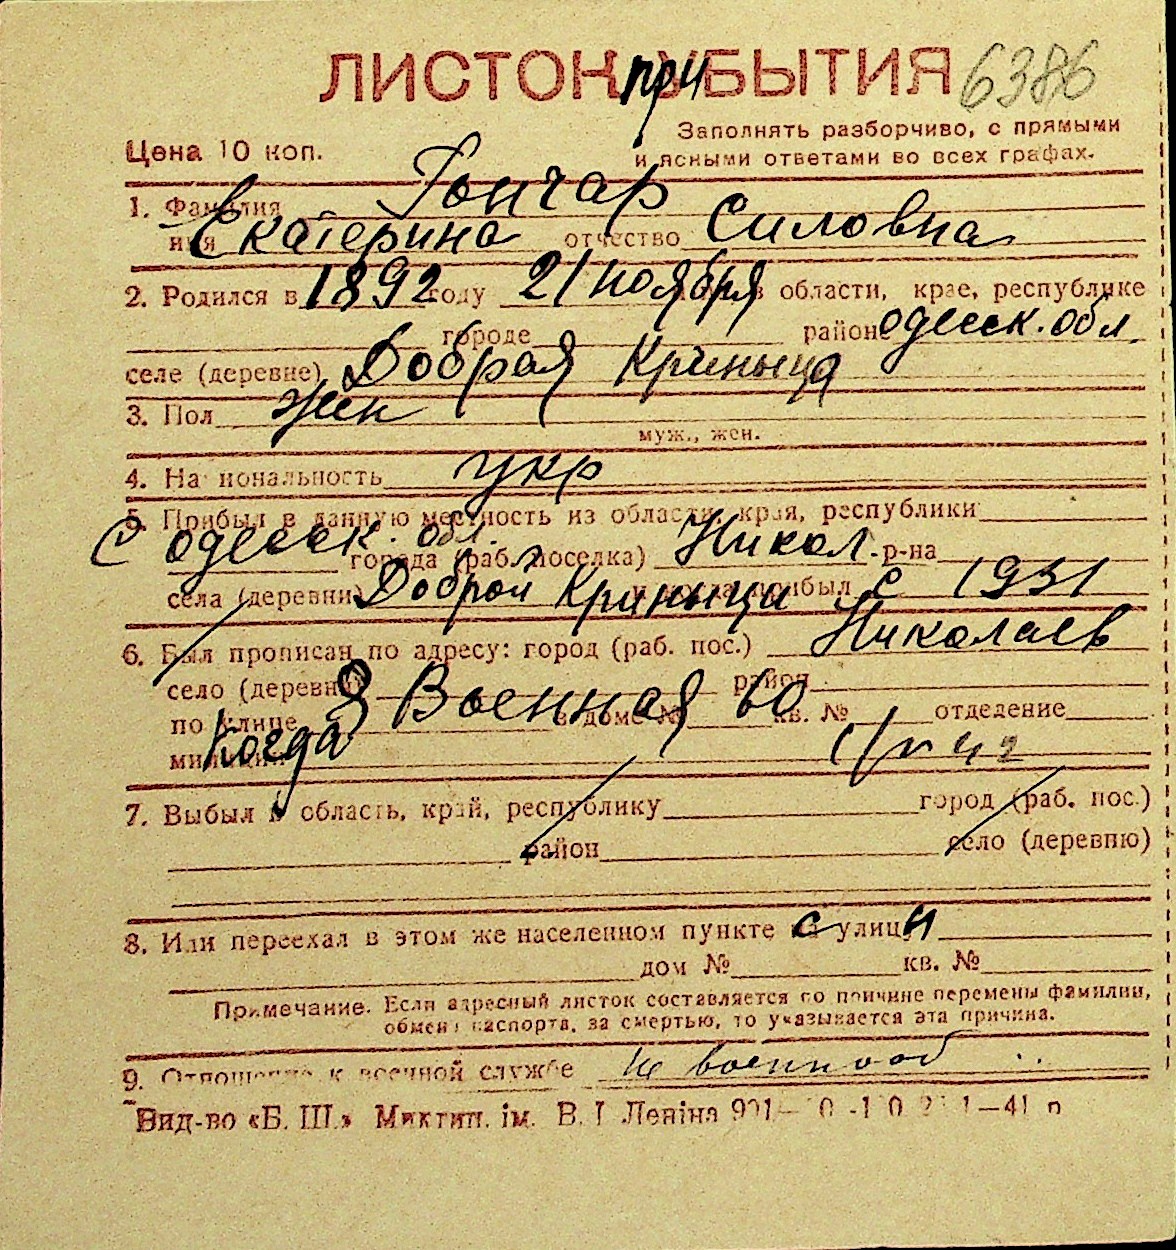 ЛИСТОК при УБЫТИЯ 6386
Цена 10 коп.
Заполнять разборчиво, с прямыми
и ясными ответами во всех графах.
1. Фамилия Гончар
имя Екатерина отчество Силовна
2. Родился в 1892 году 21 ноября в области, крае, республике
городе районе одесск. обл.
селе (деревне) Добрая Криныця
3. Пол жен
муж., жен.
4. Национальность укр
5. Прибыл в данную местность из области, края, республики
с одесск. обл. города (раб. поселка) Никол. р-на
села (деревни) Доброй Криныци и когда прибыл с 1931
6. Был прописан по адресу: город (раб. пос.) Николаев
село (деревня) район
по улице 8 Военная в доме № 60 кв. № отделение
милиции Когда
7. Выбыл в область, край, республику город (раб. пос.)
район село (деревню)
8. Или переехал в этом же населенном пункте с улицы
дом № кв. №
Примечание. Если адресный листок составляется по причине перемены фамилии,
обмена паспорта, за смертью, то указывается эта причина.
9. Отношение к военной службе Не военнооб
Вид-во «Б. Ш.» Миктип. ім. В. І Леніна